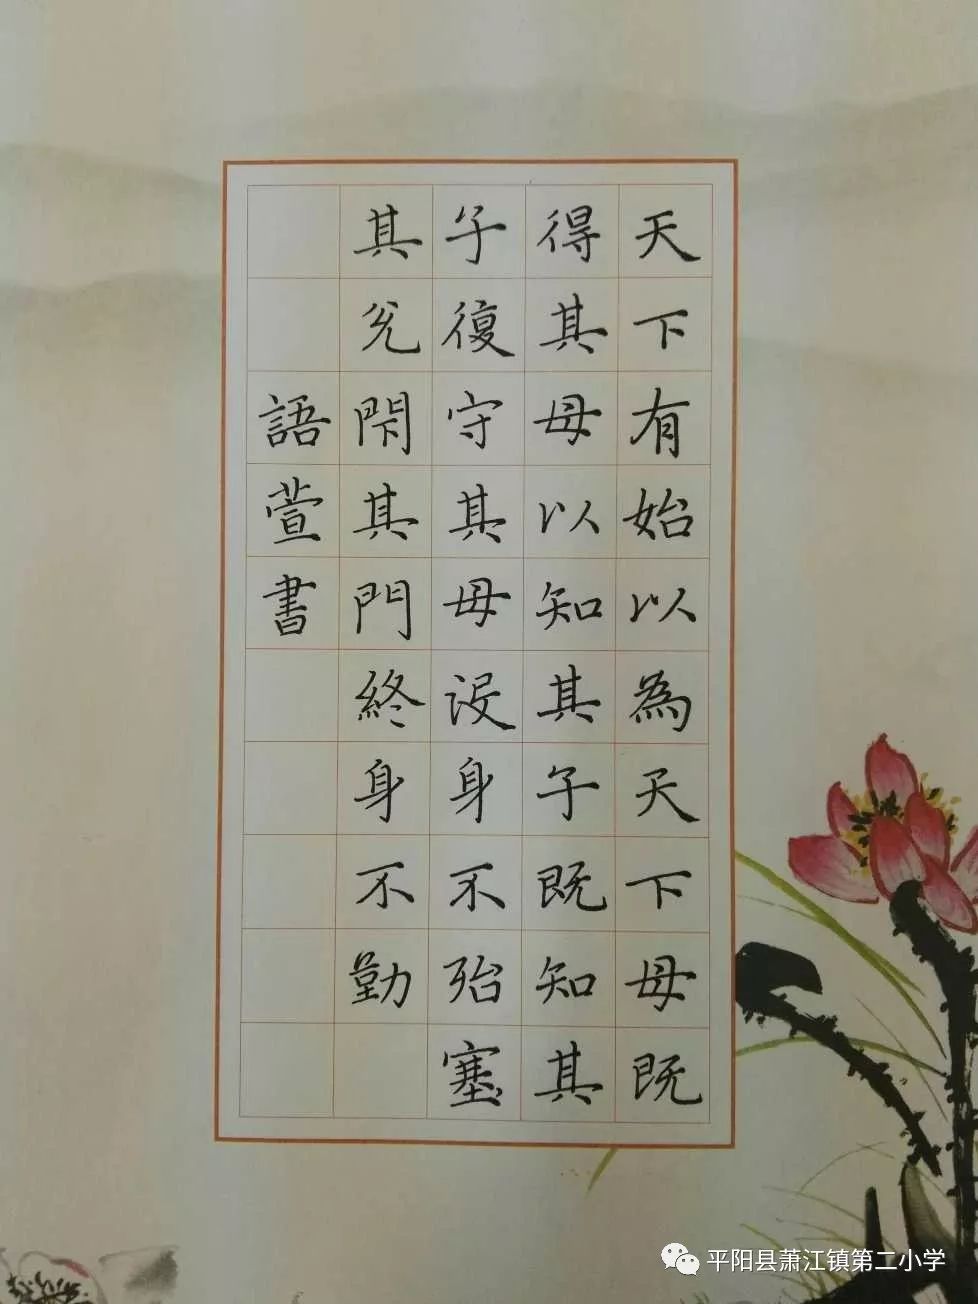 天下有始以為天下母既
得其母以知其子既知其
子復守其母没身不殆塞
其兊閇其門終身不勤
語萱書
平阳县萧江镇第二小学